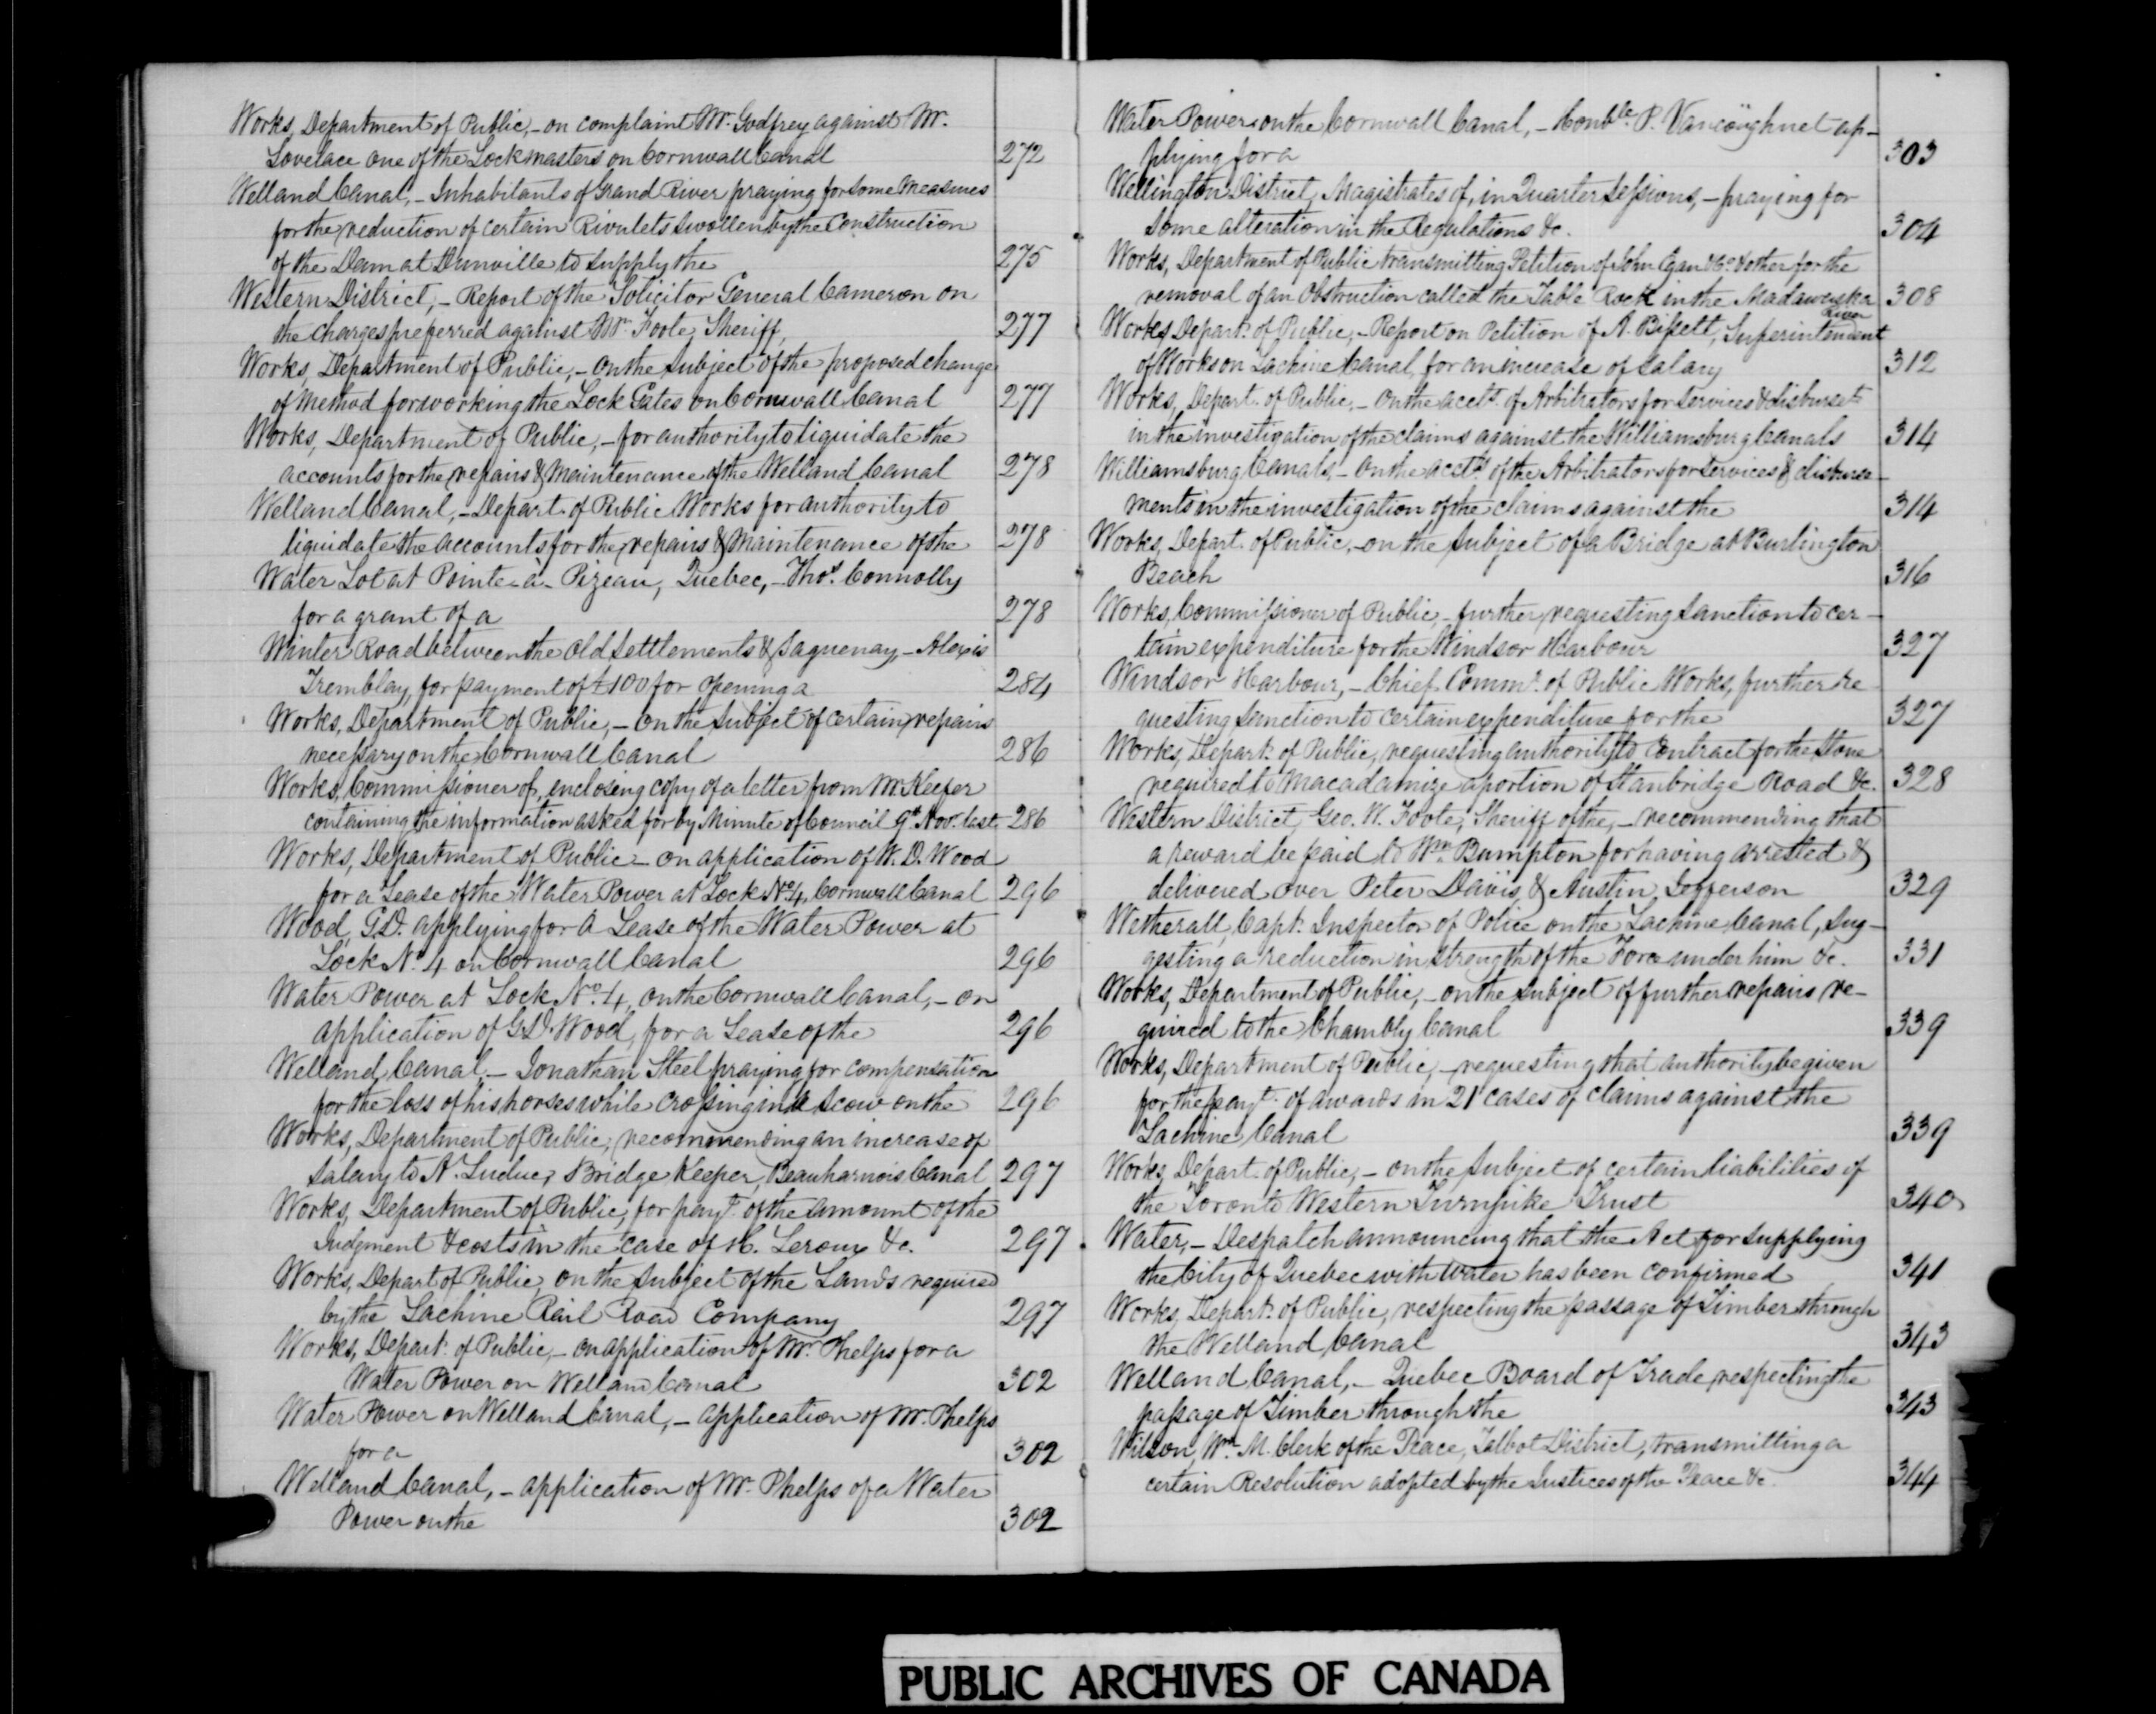 Works, Department of Public, - on complaint Mr. Godfrey against Mr.
Lovelace one of the Lockmasters on Cornwall Canal 272
Welland Canal, - Inhabitants of Grand River praying for some measures
for the reduction of certain Rivulets swollen by the Construction
of the Dam at Dunville to supply the 275
Western District, - Report of the Solicitor General Cameron on
the charges preferred against Mr. Foote, Sheriff, 277
Works, Department of Public, - On the subject of the proposed change
of method for working the Lock Gates on Cornwall Canal 277
Works, Department of Public, - for authority to liquidate the
accounts for the repairs & Maintenance of the Welland Canal 278
Welland Canal, - Depart. of Public Works for authority to
liquidate the accounts for the repairs & Maintenance of the 278
Water Lot at Pointe-à-Pizeau, Quebec, - Thos. Connolly
for a grant of a 278
Winter Road between the Old Settlements & Saguenay, - Alexis
Tremblay, for payment of £100 for opening a 284
Works, Department of Public, - On the subject of certain repairs
necessary on the Cornwall Canal 286
Works, Commissioner of, enclosing copy of a letter from Mr. Keefer
containing the information asked for by Minute of Council 9th Nov. last 286
Works, Department of Public - on application of W. D. Wood
for a Lease of the Water Power at Lock No. 4, Cornwall Canal 296
Wood, G.D. applying for a Lease of the Water Power at
Lock No. 4 on Cornwall Canal 296
Water Power at Lock No. 4, on the Cornwall Canal, - on
application of G.D. Wood, for a Lease of the 296
Welland Canal, - Jonathan Steel praying for compensation
for the loss of his horses while crossing in a scow on the 296
Works, Department of Public, recommending an increase of
salary to A. Luduc, Bridge Keeper, Beauharnois Canal 297
Works, Department of Public, for payt. of the amount of the
Judgment & costs in the case of H. Leroux &c. 297
Works, Depart of Public, on the subject of the Lands required
by the Lachine Rail Road Company 297
Works, Depart. of Public, - on application of Mr. Phelps for a
Water Power on Welland Canal 302
Water Power on Welland Canal, - application of Mr. Phelps
for a 302
Welland Canal, - application of Mr. Phelps of a Water
Power on the 302
Water Power on the Cornwall Canal, - Honble. P. Vancöughnet ap-
plying for a 303
Wellington District, Magistrates of, in Quarter Sessions, - praying for
some alteration in the Regulations &c. 304
Works, Department of Public transmitting Petition of John Egan & Co. & other for the
removal of an Obstruction called the Table Rock in the Madawaska River 308
Works, Depart. of Public, - Report on Petition of A. Bissett, Superintendent
of Works on Lachine Canal, for an increase of salary 312
Works, Depart. of Public, - On the acctt. of Arbitrators for services & disburse.ts
in the investigation of the claims against the Williamsburg Canals 314
Williamsburg Canals, - On the acctt. of the Arbitrators for services & disburse-
ments in the investigation of the claims against the 314
Works, Depart. of Public, - on the subject of a Bridge at Burlington
Beach 316
Works, Commissioner of Public, - further requesting sanction to cer-
tain expenditure for the Windsor Harbour 327
Windsor Harbour, - Chief Commr. of Public Works, further re
questing sanction to certain expenditure for the 327
Works, Depart. of Public, requesting authority to Contract for the Stone
required to Macadamize a portion of Stanbridge Road &c. 328
Western District, Geo. W. Foote, Sheriff of the, - recommending that
a reward be paid to Wm. Bumpton for having arrested &
delivered over Peter Davis & Austin Jefferson 329
Wetherall, Capt. Inspector of Police on the Lachine Canal, Sug-
gesting a reduction in strength of the Force under him &c. 331
Works, Department of Public, - on the subject of further repairs re-
quired to the Chambly Canal 339
Works, Department of Public, - requesting that authority be given
for the payt. of awards in 21 cases of claims against the
Lachine Canal 339
Works, Depart. of Public, - on the subject of certain liabilities of
the Toronto Western Turnpike Trust 340
Water, - Despatch announcing that the Act for supplying
the City of Quebec with water has been confirmed 341
Works, Depart. of Public, respecting the passage of Timber through
the Welland Canal 343
Welland Canal, - Quebec Board of Trade respecting the
passage of Timber through the 343
Wilson, Wm. M. Clerk of the Peace, Talbot District, transmitting a
certain Resolution adopted by the Justices of the Peace &c. 344
PUBLIC ARCHIVES OF CANADA